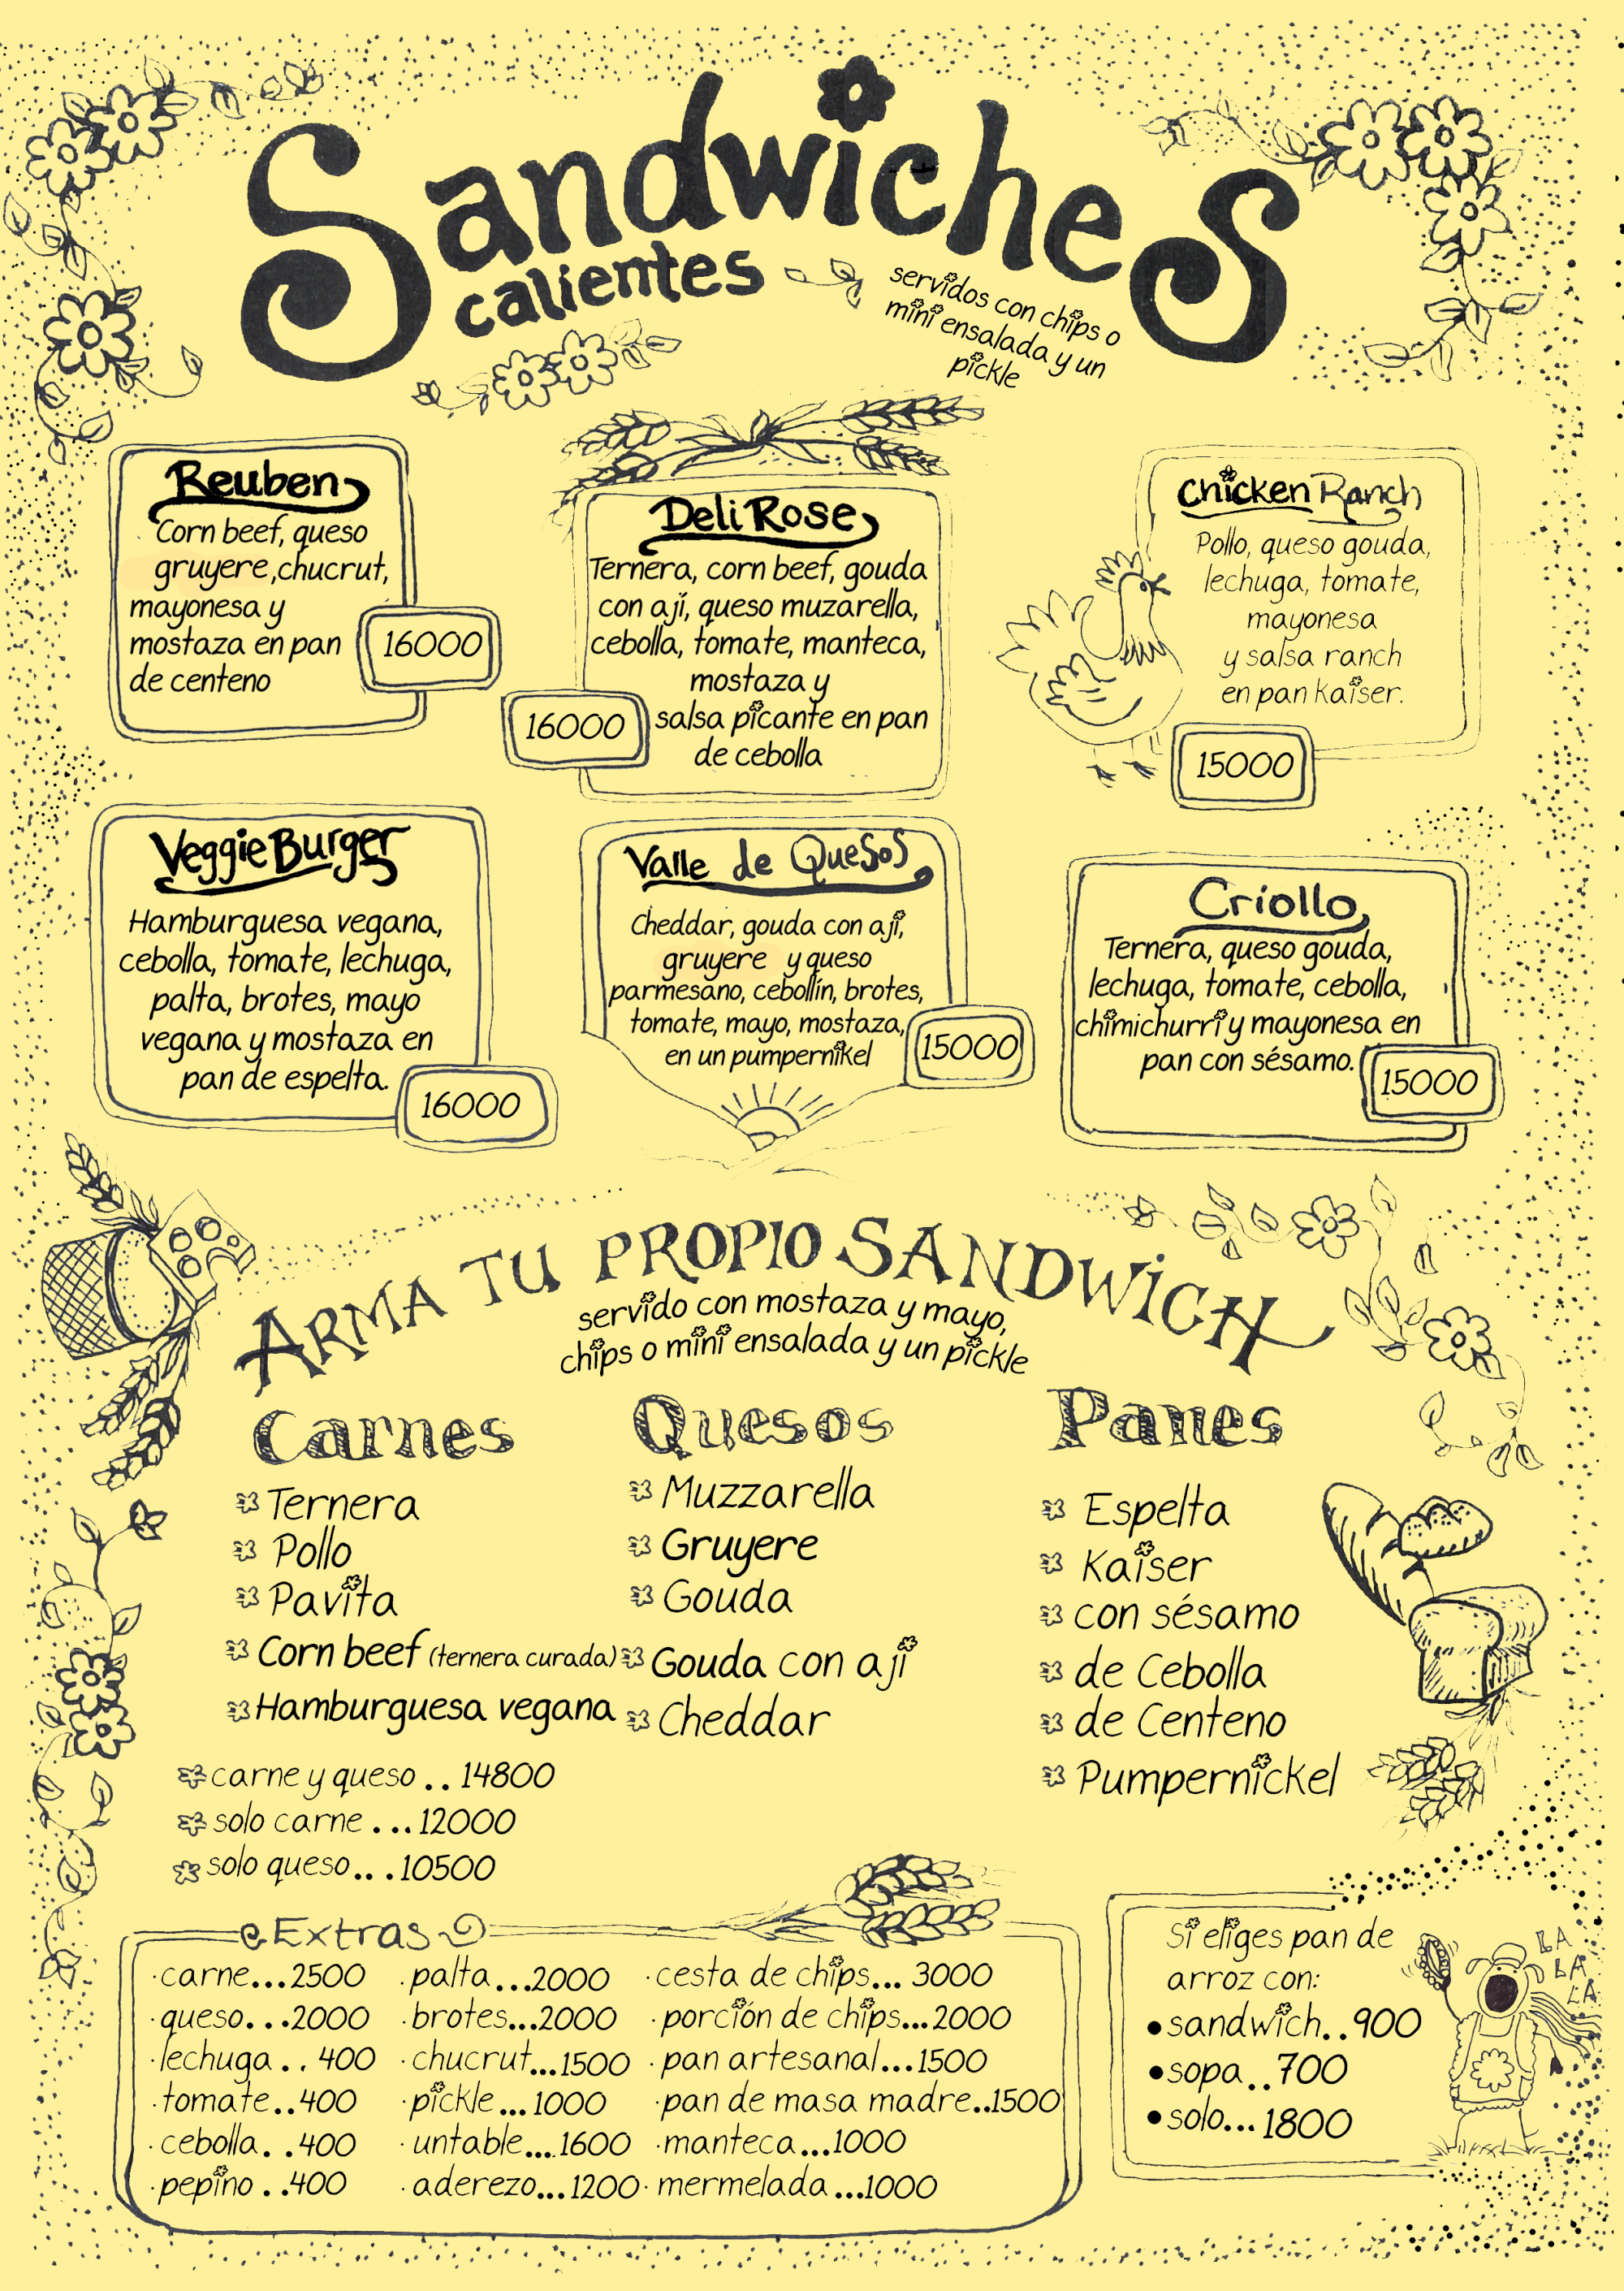 Sandwiches
calientes
servidos con chips o
mini ensalada y un
pickle
Reuben
Corn beef, queso
gruyere,chucrut,
mayonesa y
mostaza en pan
de centeno
16000
Deli Rose
Ternera, corn beef, gouda
con ají, queso muzarella,
cebolla, tomate, manteca,
mostaza y
salsa picante en pan
de cebolla
16000
Chicken Ranch
Pollo, queso gouda,
lechuga, tomate,
mayonesa
y salsa ranch
en pan kaiser.
15000
Veggie Burger
Hamburguesa vegana,
cebolla, tomate, lechuga,
palta, brotes, mayo
vegana y mostaza en
pan de espelta.
16000
Valle de Quesos
Cheddar, gouda con ají,
gruyere y queso
parmesano, cebollín, brotes,
tomate, mayo, mostaza,
en un pumpernikel
15000
Criollo
Ternera, queso gouda,
lechuga, tomate, cebolla,
chimichurri y mayonesa en
pan con sésamo.
15000
ARMA TU PROPIO SANDWICH
servido con mostaza y mayo,
chips o mini ensalada y un pickle
Carnes
Ternera
Pollo
Pavita
Corn beef (ternera curada)
Hamburguesa vegana
Quesos
Muzzarella
Gruyere
Gouda
Gouda con ají
Cheddar
Panes
Espelta
Kaiser
con sésamo
de Cebolla
de Centeno
Pumpernickel
carne y queso .. 14800
solo carne ... 12000
solo queso... 10500
Extras
·carne...2500
·queso...2000
·lechuga.. 400
·tomate..400
·cebolla. .400
·pepino . .400
·palta...2000
·brotes...2000
·chucrut...1500
·pickle...1000
·untable....1600
·aderezo...1200
·cesta de chips... 3000
·porción de chips...2000
·pan artesanal...1500
·pan de masa madre..1500
·manteca...1000
·mermelada...1000
Si eliges pan de
arroz con:
•sandwich..900
•sopa..700
•solo...1800
LA
LA
LA